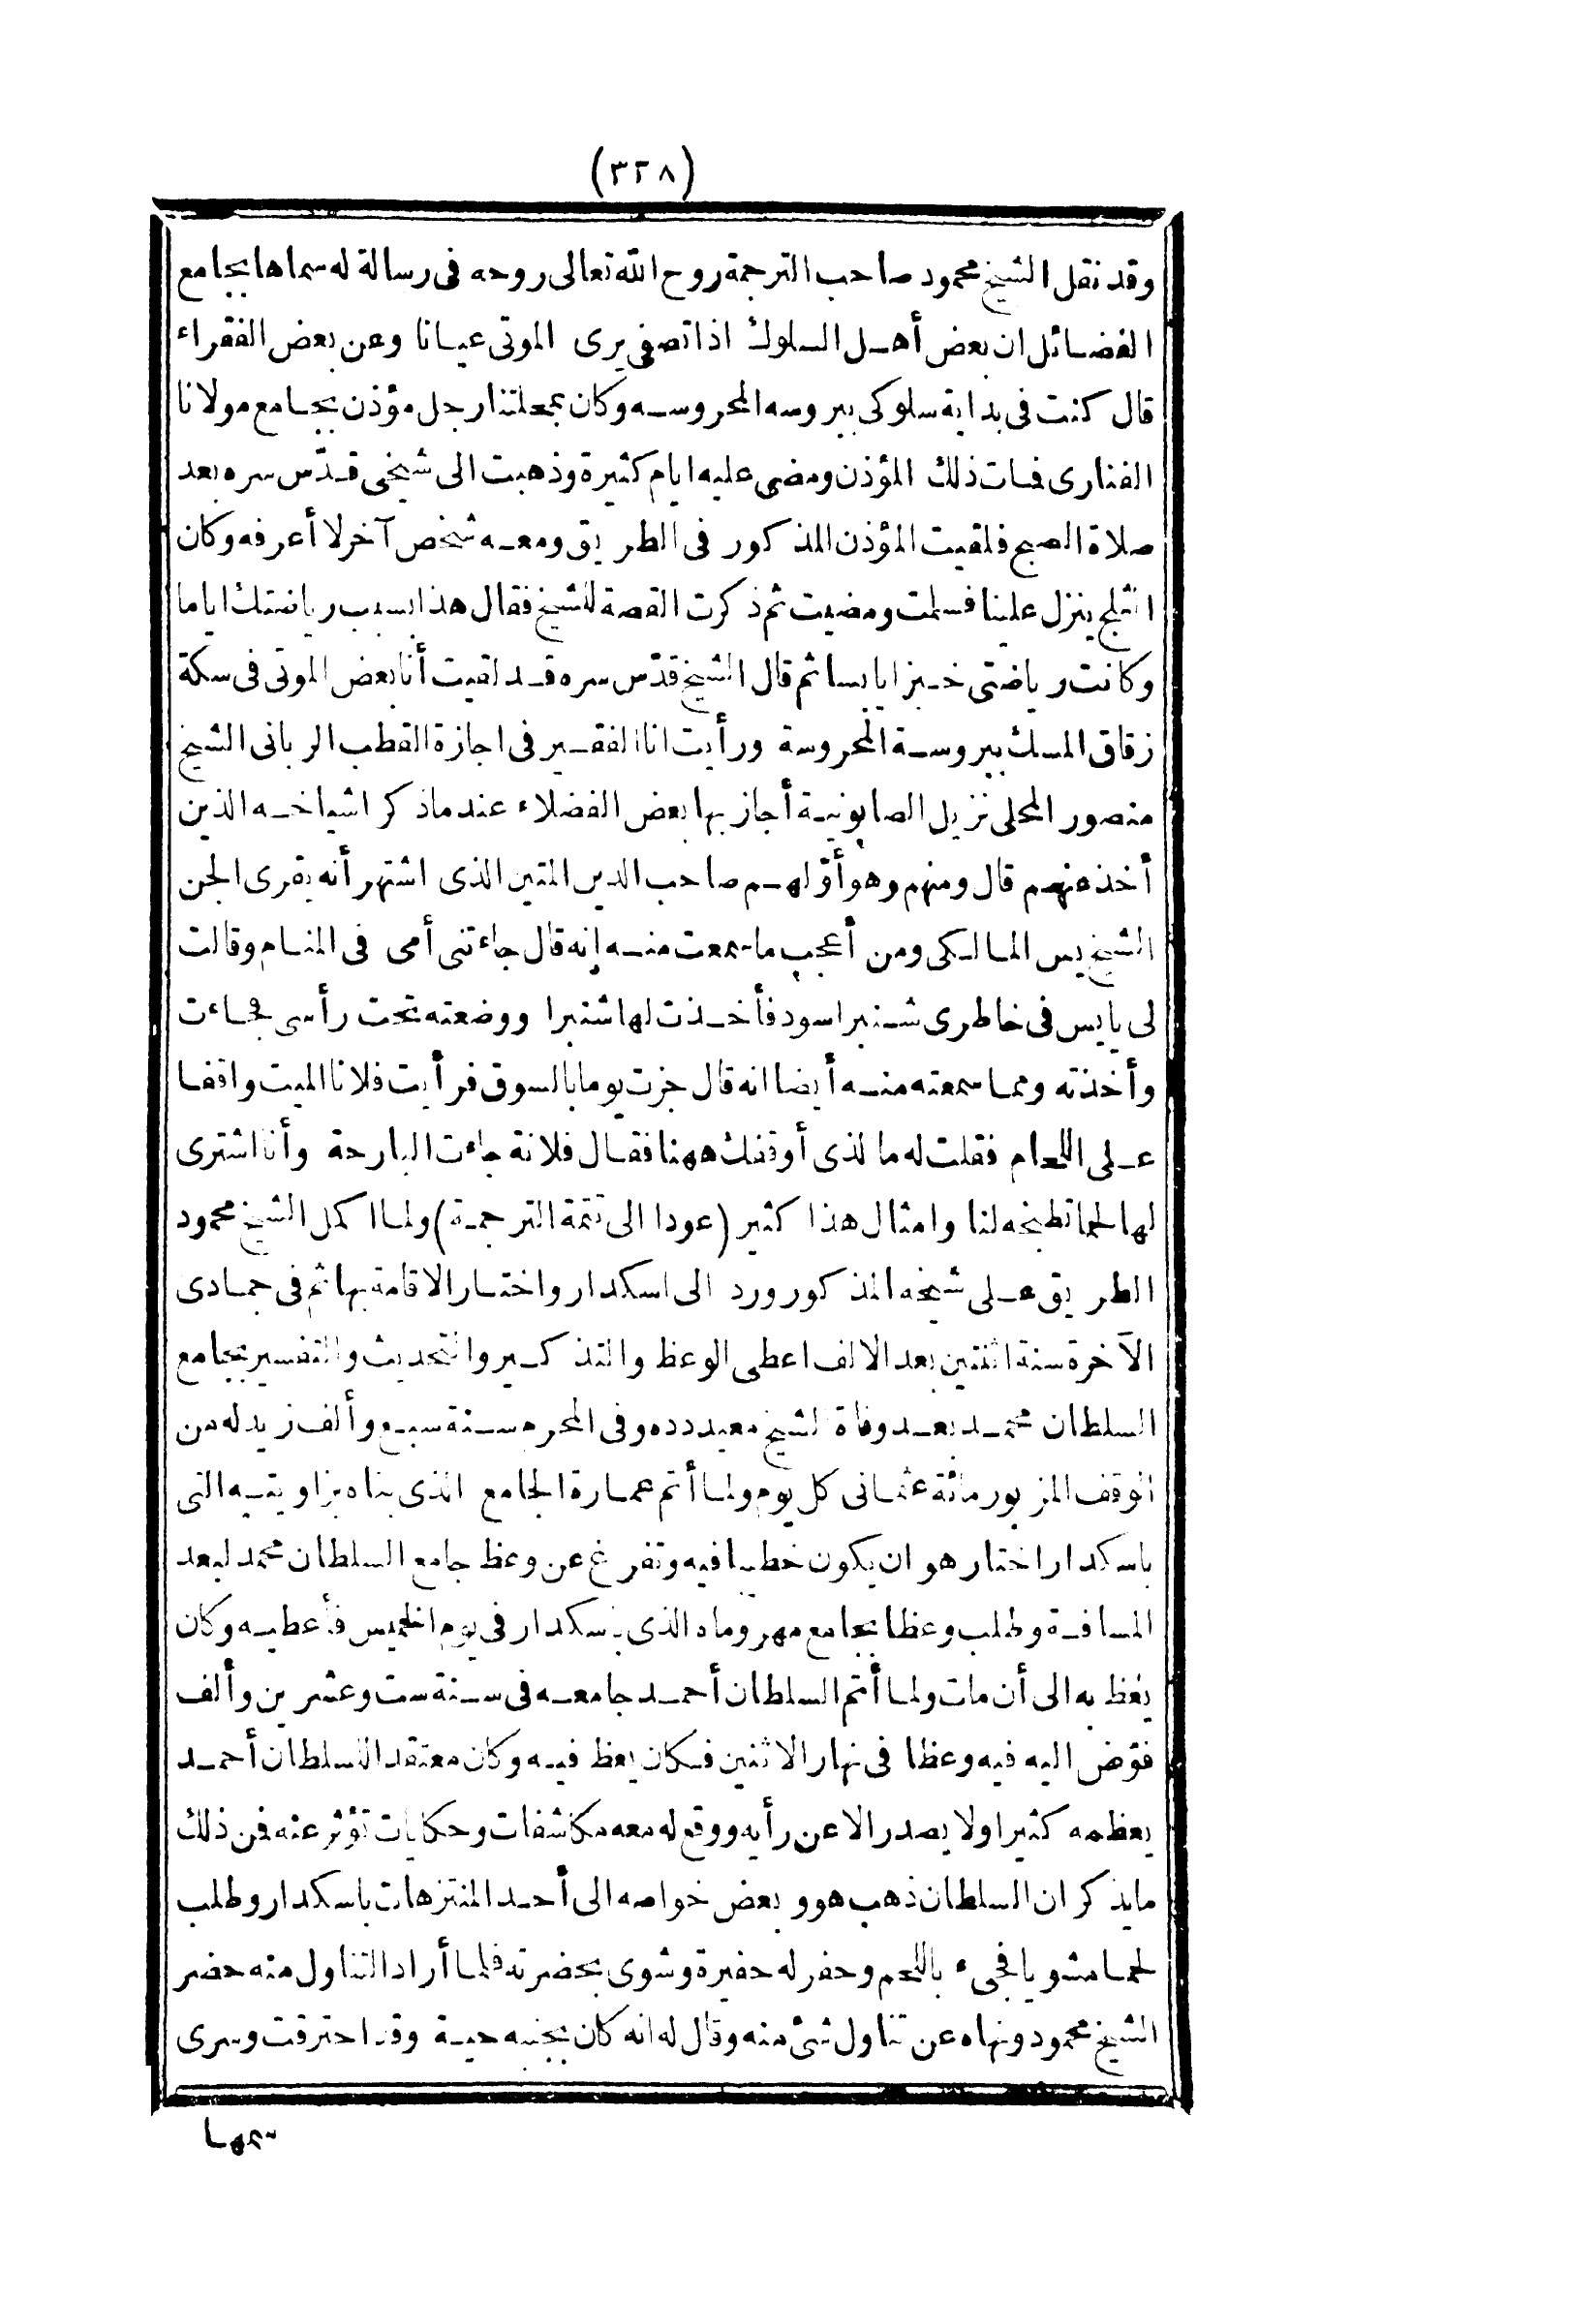 (٣٢٨)
وقد نقل الشيخ محمود صاحب الترجمة روح الله تعالى روحه فى رسالة له سماها بجامع
الفضائل ان بعض أهل السلوك اذا تصفى يرى الموتى عيانا وعن بعض الفقراء
قال كنت فى بداية سلوكى ببروسه المحروسه وكان بمحلتنا رجل مؤذن بجامع مولانا
الفنارى فمات ذلك المؤذن ومضى عليه ايام كثيرة وذهبت الى شيخى قدّس سره بعد
صلاة الصبح فلقيت المؤذن المذكور فى الطريق ومعه شخص آخر لا أعرفه وكان
الثلج ينزل علينا فسلمت ومضيت ثم ذكرت القصة للشيخ فقال هذا بسبب رياضتك اياما
وكانت رياضتى خبزا يابسا ثم قال الشيخ قدّس سره قد لقيت أنا بعض الموتى فى سكة
زقاق المسك ببروسة المحروسة ورأيت انا الفقير فى اجازة القطب الربانى الشيخ
منصور المحلى نزيل الصابونية أجاز بها بعض الفضلاء عند ماذكر اشياخه الذين
أخذ عنهم قال ومنهم وهو أوّلهم صاحب الدين المتين الذى اشتهر أنه يقرى الجن
الشيخ يس المالكى ومن أعجب ما سمعت منه إنه قال جاءتنى أمى فى المنام وقالت
لى يايس فى خاطرى شنبر اسود فأخذت لها شنبرا ووضعته تحت رأسى فجاءت
وأخذته ومما سمعته منه أيضا انه قال جزت يوما بالسوق فرأيت فلانا الميت واقفا
على اللحام فقلت له ما لذى أوقفك ههنا فقال فلانة جاءت البارحة وأنا اشترى
لها لحما تطبخه لنا وامثال هذا كثير (عودا الى تتمة الترجمة) ولما اكمل الشيخ محمود
الطريق على شيخه المذكور ورد الى اسكدار واختار الاقامة بها ثم فى جمادى
الآخرة سنة اثنتين بعد الالف اعطى الوعظ والتذكير والتحديث والتفسير بجامع
السلطان محمد بعد وفاة الشيخ معيد دده وفى المحرم سنة سبع وألف زيد له من
الوقف المزبور مائة عثمانى كل يوم ولما أتم عمارة الجامع الذى بناه بزاويته التى
باسكدار اختار هو ان يكون خطيبا فيه وتفرغ عن وعظ جامع السلطان محمد لبعد
المسافة وطلب وعظا بجامع مهروماه الذى باسكدار فى يوم الخميس فأعطيه وكان
يعظ به الى أن مات ولما أتم السلطان أحمد جامعه فى سنة ست وعشرين وألف
فوّض اليه فيه وعظا فى نهار الاثنين فكان يعظ فيه وكان معتقد اللسلطان أحمد
يعظمه كثيرا ولا يصدر الا عن رأيه ووقع له معه مكاشفات وحكايات تؤثر عنه فمن ذلك
مايذكر ان السلطان ذهب هو وبعض خواصه الى أحد المنتزهات باسكدار وطلب
لحما مشويا فجىء باللحم وحفر له حفيرة وشوى بحضرته فلما أراد التناول منه حضر
الشيخ محمود ونهاه عن تناول شئ منه وقال له انه كان بجنبه حية وقد احترقت وسرى
سمها